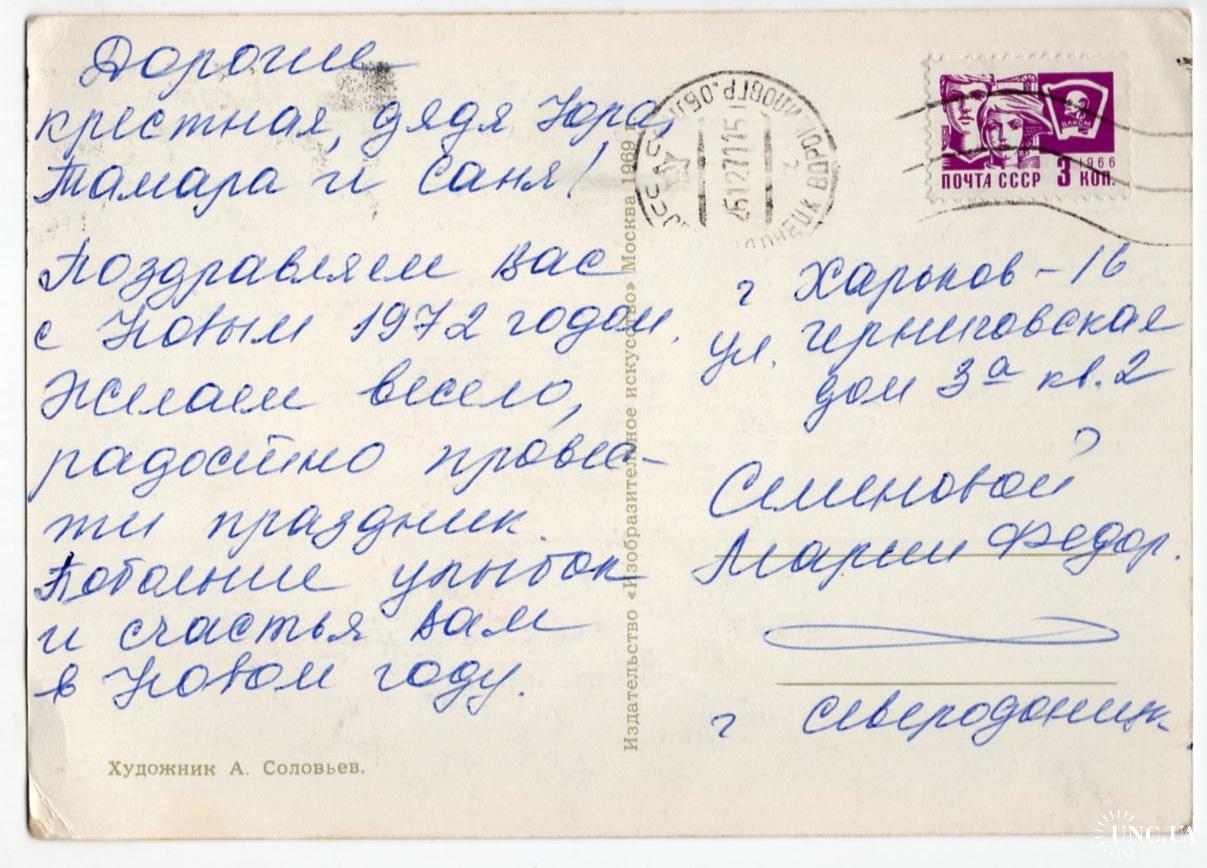 Дорогие
крестная, дядя Юра,
Тамара и Саня!
Поздравляем Вас
с Новым 1972 годом.
Желаем весело,
радостно провес-
ти праздник.
Побольше улыбок
и счастья Вам
в Новом году.
Художник А. Соловьев.
Издательство «Изобразительное искусство» Москва 1969
ВЛКСМ
1966
ПОЧТА СССР 3 КОП.
г Харьков - 16
ул. Черниговская
дом 3а кв. 2
Семеновой
Марии Федор.
г Северодонецк.
UNC.UA